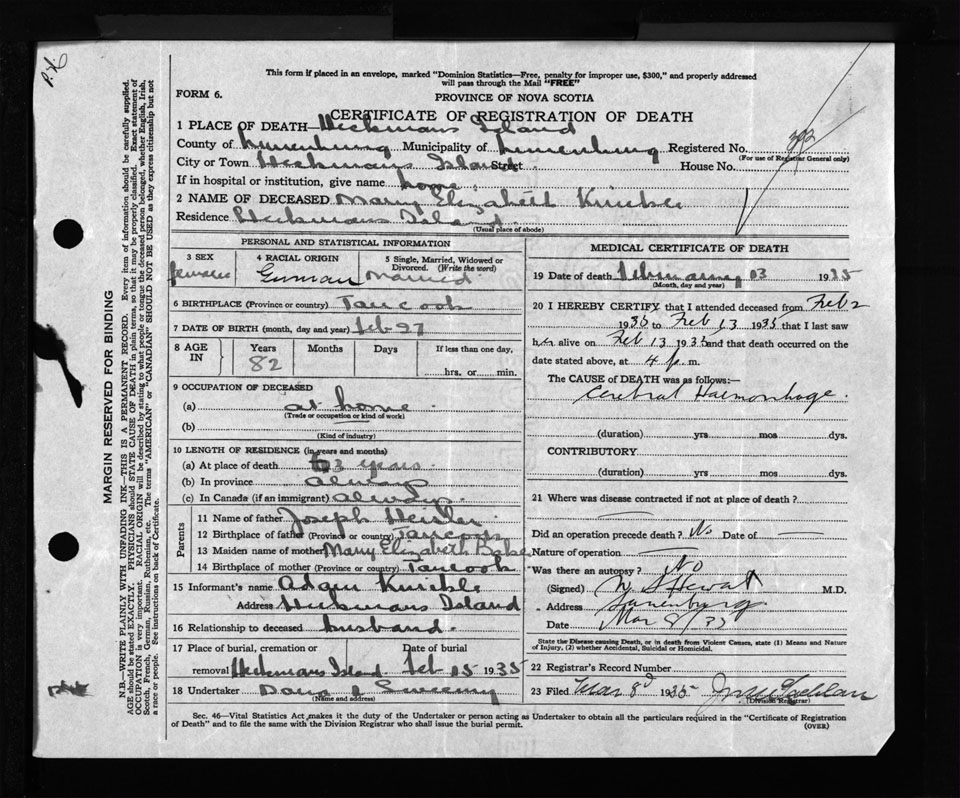 This form if placed in an envelope, marked "Dominion Statistics—Free, penalty for improper use, $300," and properly addressed
will pass through the Mail "FREE"
FORM 6.
PROVINCE OF NOVA SCOTIA
CERTIFICATE OF REGISTRATION OF DEATH
1 PLACE OF DEATH—Heckmans Island
County of Lunenburg Municipality of Lunenburg Registered No.
(For use of Registrar General only)
City or Town Heckmans Island Street House No.
If in hospital or institution, give name home
2 NAME OF DECEASED Mary Elizabeth
Residence Heckmans Island
(Usual place of abode)
PERSONAL AND STATISTICAL INFORMATION
3 SEX 4 RACIAL ORIGIN 5 Single, Married, Widowed or Divorced. (Write the word)
German married
6 BIRTHPLACE (Province or country) Tancook
7 DATE OF BIRTH (month, day and year) Feb 27
8 AGE IN Years Months Days If less than one day,
82 hrs. or min.
9 OCCUPATION OF DECEASED
(a) at home
(Trade or occupation or kind of work)
(b)
(Kind of industry)
10 LENGTH OF RESIDENCE (in years and months)
(a) At place of death 3 years
(b) In province always
(c) In Canada (if an immigrant) always
Parents
11 Name of father Joseph Heisler
12 Birthplace of father (Province or country) Tancook
13 Maiden name of mother Mary Elizabeth Baker
14 Birthplace of mother (Province or country) Tancook
15 Informant's name
Address Heckmans Island
16 Relationship to deceased husband
17 Place of burial, cremation or Date of burial
removal Heckmans Island Feb 15 1935
18 Undertaker Sweeny
(Name and address)
MEDICAL CERTIFICATE OF DEATH
19 Date of death February 13 1935
(Month, day and year)
20 I HEREBY CERTIFY that I attended deceased from Feb 2
1935 to Feb 13 1935 that I last saw
her alive on Feb 13 1935 and that death occurred on the
date stated above, at 4 p. m.
The CAUSE of DEATH was as follows:—
Cerebral Haemorrhage.
(duration) yrs mos dys.
CONTRIBUTORY
(duration) yrs mos dys.
21 Where was disease contracted if not at place of death?
Did an operation precede death? No Date of
Nature of operation
Was there an autopsy? No
(Signed) M.D.
Address Lunenburg.
Date Mar 8/35
State the Disease causing Death, or in death from Violent Causes, state (1) Means and Nature
of Injury, (2) whether Accidental, Suicidal or Homicidal.
22 Registrar's Record Number
23 Filed Mar 8th 1935
(Division Registrar)
Sec. 46—Vital Statistics Act makes it the duty of the Undertaker or person acting as Undertaker to obtain all the particulars required in the "Certificate of Registration
of Death" and to file the same with the Division Registrar who shall issue the burial permit.
(OVER)
MARGIN RESERVED FOR BINDING
N.B.—WRITE PLAINLY WITH UNFADING INK—THIS IS A PERMANENT RECORD. Every item of information should be carefully supplied.
AGE should be stated EXACTLY. PHYSICIANS should STATE CAUSE OF DEATH in plain terms, so that it may be properly classified. Exact statement of
OCCUPATION is very important. RACIAL ORIGIN will be described by stating to what people or tongue the deceased person belonged, whether English, Irish,
Scotch, French, German, Russian, Ruthenian, etc. The terms "AMERICAN" or "CANADIAN" SHOULD NOT BE USED as they express citizenship but not
a race or people. See instructions on back of Certificate.